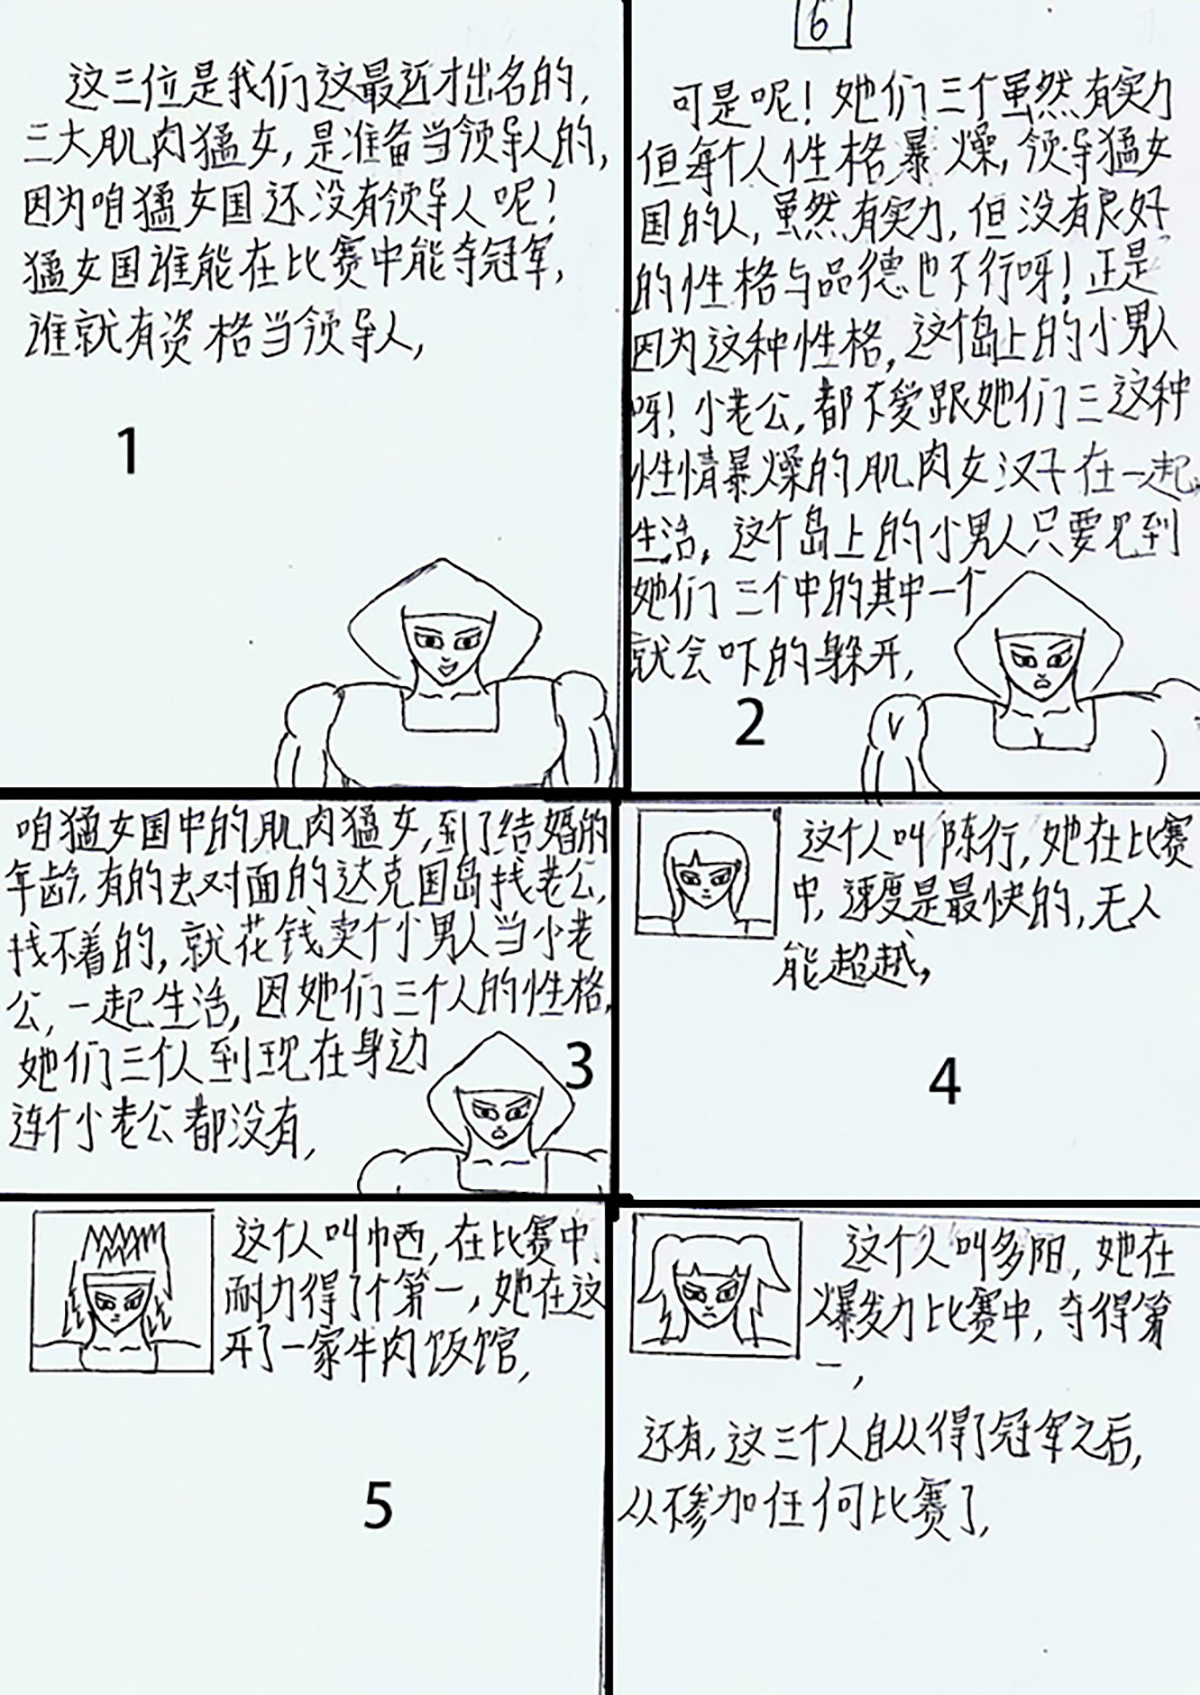 这三位是我们这最近才出名的,
三大肌肉猛女,是准备当领导人的,
因为咱猛女国还没有领导人呢!
猛女国谁能在比赛中能夺冠军,
谁就有资格当领导人,
1
6
可是呢!她们三个虽然有实力
但每个人性格暴燥,领导猛女
国的人,虽然有实力,但没有良好
的性格与品德也不行呀!正是
因为这种性格,这个岛上的小男人
呀!小老公,都不爱跟她们三这种
性情暴燥的肌肉女汉子在一起
生活,这个岛上的小男人只要见到
她们三个中的其中一个
就会吓的躲开,
2
咱猛女国中的肌肉猛女,到了结婚的
年龄,有的去对面的达克国岛找老公,
找不着的,就花钱卖个小男人当小老
公,一起生活,因她们三个人的性格,
她们三个人到现在身边
连个小老公都没有,
3
这个人叫陈行,她在比赛
中,速度是最快的,无人
能超越,
4
这个人叫巾西,在比赛中,
耐力得了个第一,她在这
开了一家牛肉饭馆,
5
这个人叫多阳,她在
爆发力比赛中,夺得第
一,
还有,这三个人自从得了冠军之后,
从不参加任何比赛了,